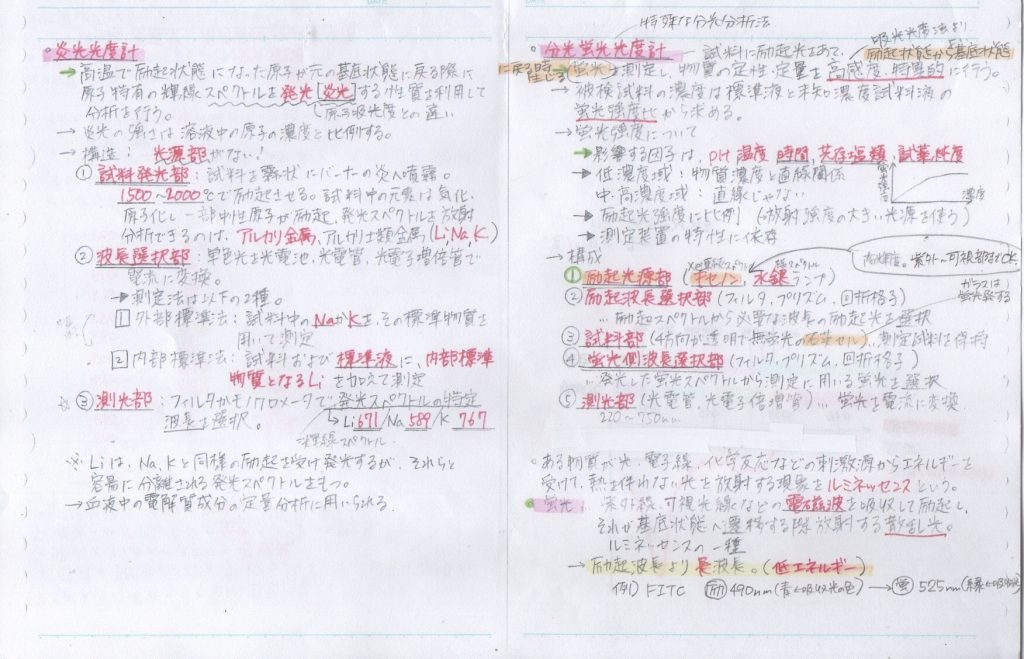 ◦炎光光度計
→高温で励起状態になった原子が元の基底状態に戻る際に
原子特有の輝線スペクトルを発光[炎光]する性質を利用して
分析を行う。
原子吸光度との違い
→炎光の強さは溶液中の原子の濃度と比例する。
→構造: 光源部がない!
①試料発光部:試料を霧状にバーナの炎へ噴霧。
1500~2000℃で励起させる。試料中の元素は気化、
原子化し一部中性原子が励起、発光スペクトルを放射
分析できるのは、アルカリ金属、アルカリ土類金属(Li,Na,K)
②波長選択部:単色光を光電池、光電管、光電子増倍管で
電流に変換。
→測定法は以下の2種。
1 外部標準法:試料中のNaかKを、その標準物質を
用いて測定
2 内部標準法:試料および標準液に、内部標準
物質となるLiを加えて測定
③測光部:フィルタかモノクロメータで発光スペクトルの特定
波長を選択。
→Li671/Na589/K767
輝線スペクトル
※Liは、Na、Kと同様の励起を受け発光するが、それらと
容易に分離される発光スペクトルをもつ。
→血液中の電解質成分の定量分析に用いられる
特殊な分光分析法
吸光光度法より
◦分光蛍光光度計―試料に励起光をあて、励起状態から基底状態
に戻る時
生じる蛍光を測定し、物質の定性・定量を高感度、特異的に行う。
→被検試料の濃度は標準液と未知濃度試料液の
蛍光強度比から求める。
→蛍光強度について
→影響する因子は、pH 温度 時間、共存塩類、試薬純度
→低濃度域:物質濃度と直線関係
中・高濃度域:直線じゃない
蛍光強度
濃度
→励起光強度に比例(放射強度の大きい光源を使う)
→測定装置の特性に依存
→構成
高輝度。紫外~可視部まで
①励起光源部(キセノン、水銀ランプ)
ガラスは
蛍光発する
②励起波長選択部(フィルタ、プリズム、回折格子)
…励起スペクトルから必要な波長の励起光を選択
③試料部(4方向が透明で無蛍光の石英セル)…測定試料を保持
④蛍光側波長選択部(フィルタ、プリズム、回折格子)
…発光した蛍光スペクトルから測定に用いる蛍光を選択
⑤測光部(光電管、光電子倍増管)…蛍光を電流に変換
220~750nm
◦ある物質が光、電子線、化学反応などの刺激源からエネルギーを
受けて、熱を伴わない光を放射する現象をルミネッセンスという。
◦蛍光:紫外線、可視光線などの電磁波を吸収して励起し、
それが基底状態へ遷移する際放射する散乱光。
ルミネッセンスの一種
→励起波長より長波長。(低エネルギー)
例)FITC 励490nm(青←吸収光の色)→蛍525nm